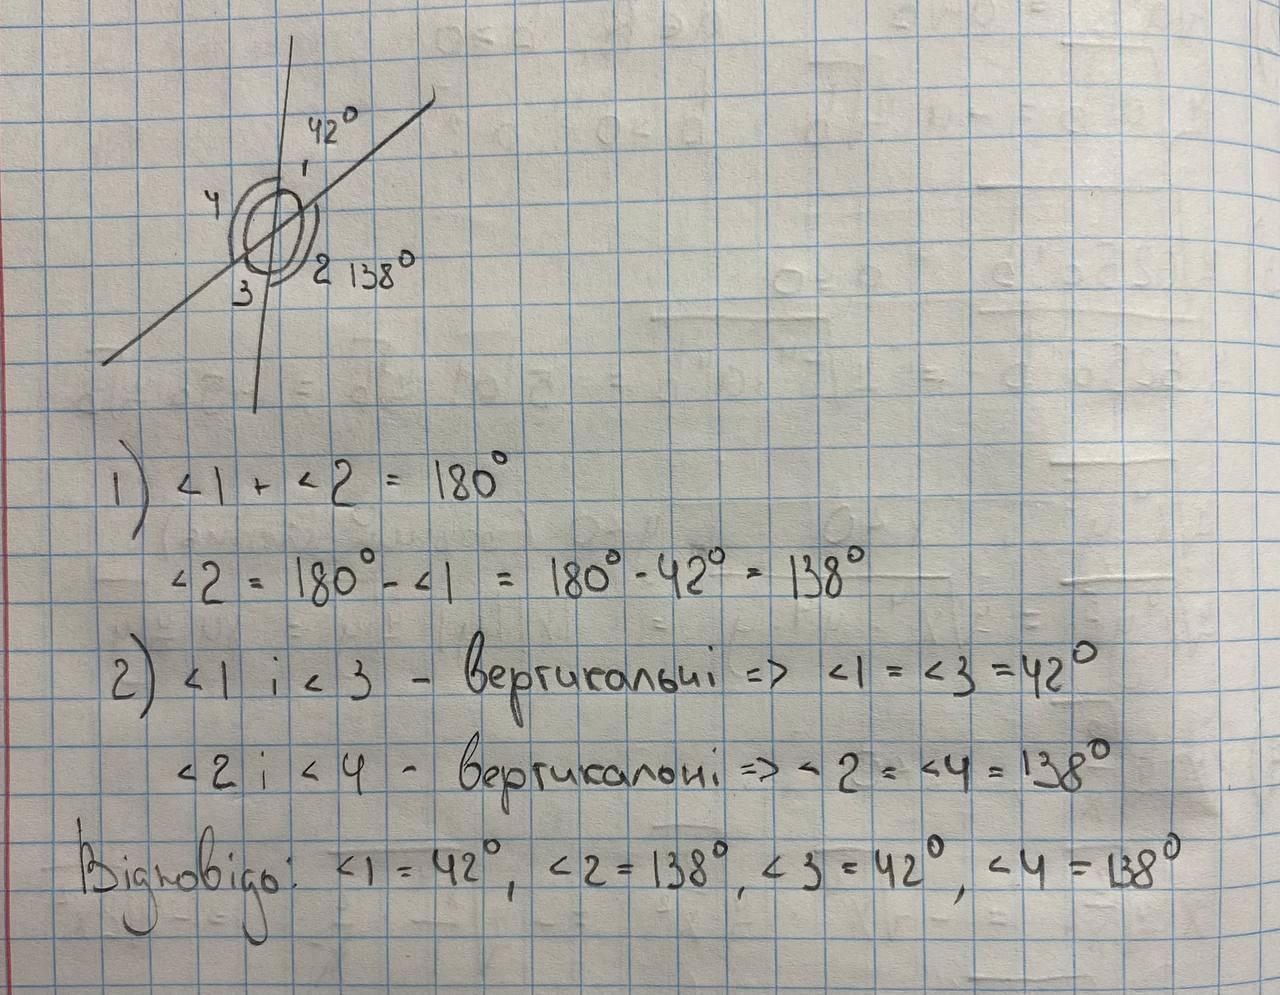 42°
1
4
2 138°
3
1) <1 + <2 = 180°
<2 = 180° - <1 = 180° - 42° = 138°
2) <1 і <3 - вертикальні => <1 = <3 = 42°
<2 і <4 - вертикальні => <2 = <4 = 138°
Відповідь: <1 = 42°, <2 = 138°, <3 = 42°, <4 = 138°